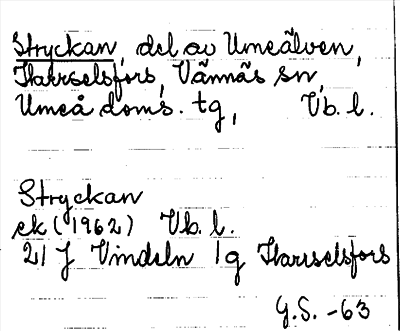 Stryckan, del av Umeälven,
Harrselsfors, Vännäs sn,
Umeå doms. tg, Vb. l.
Stryckan
ek (1962) Vb. l.
21 J Vindeln 1g Harrselsfors
G.S. -63